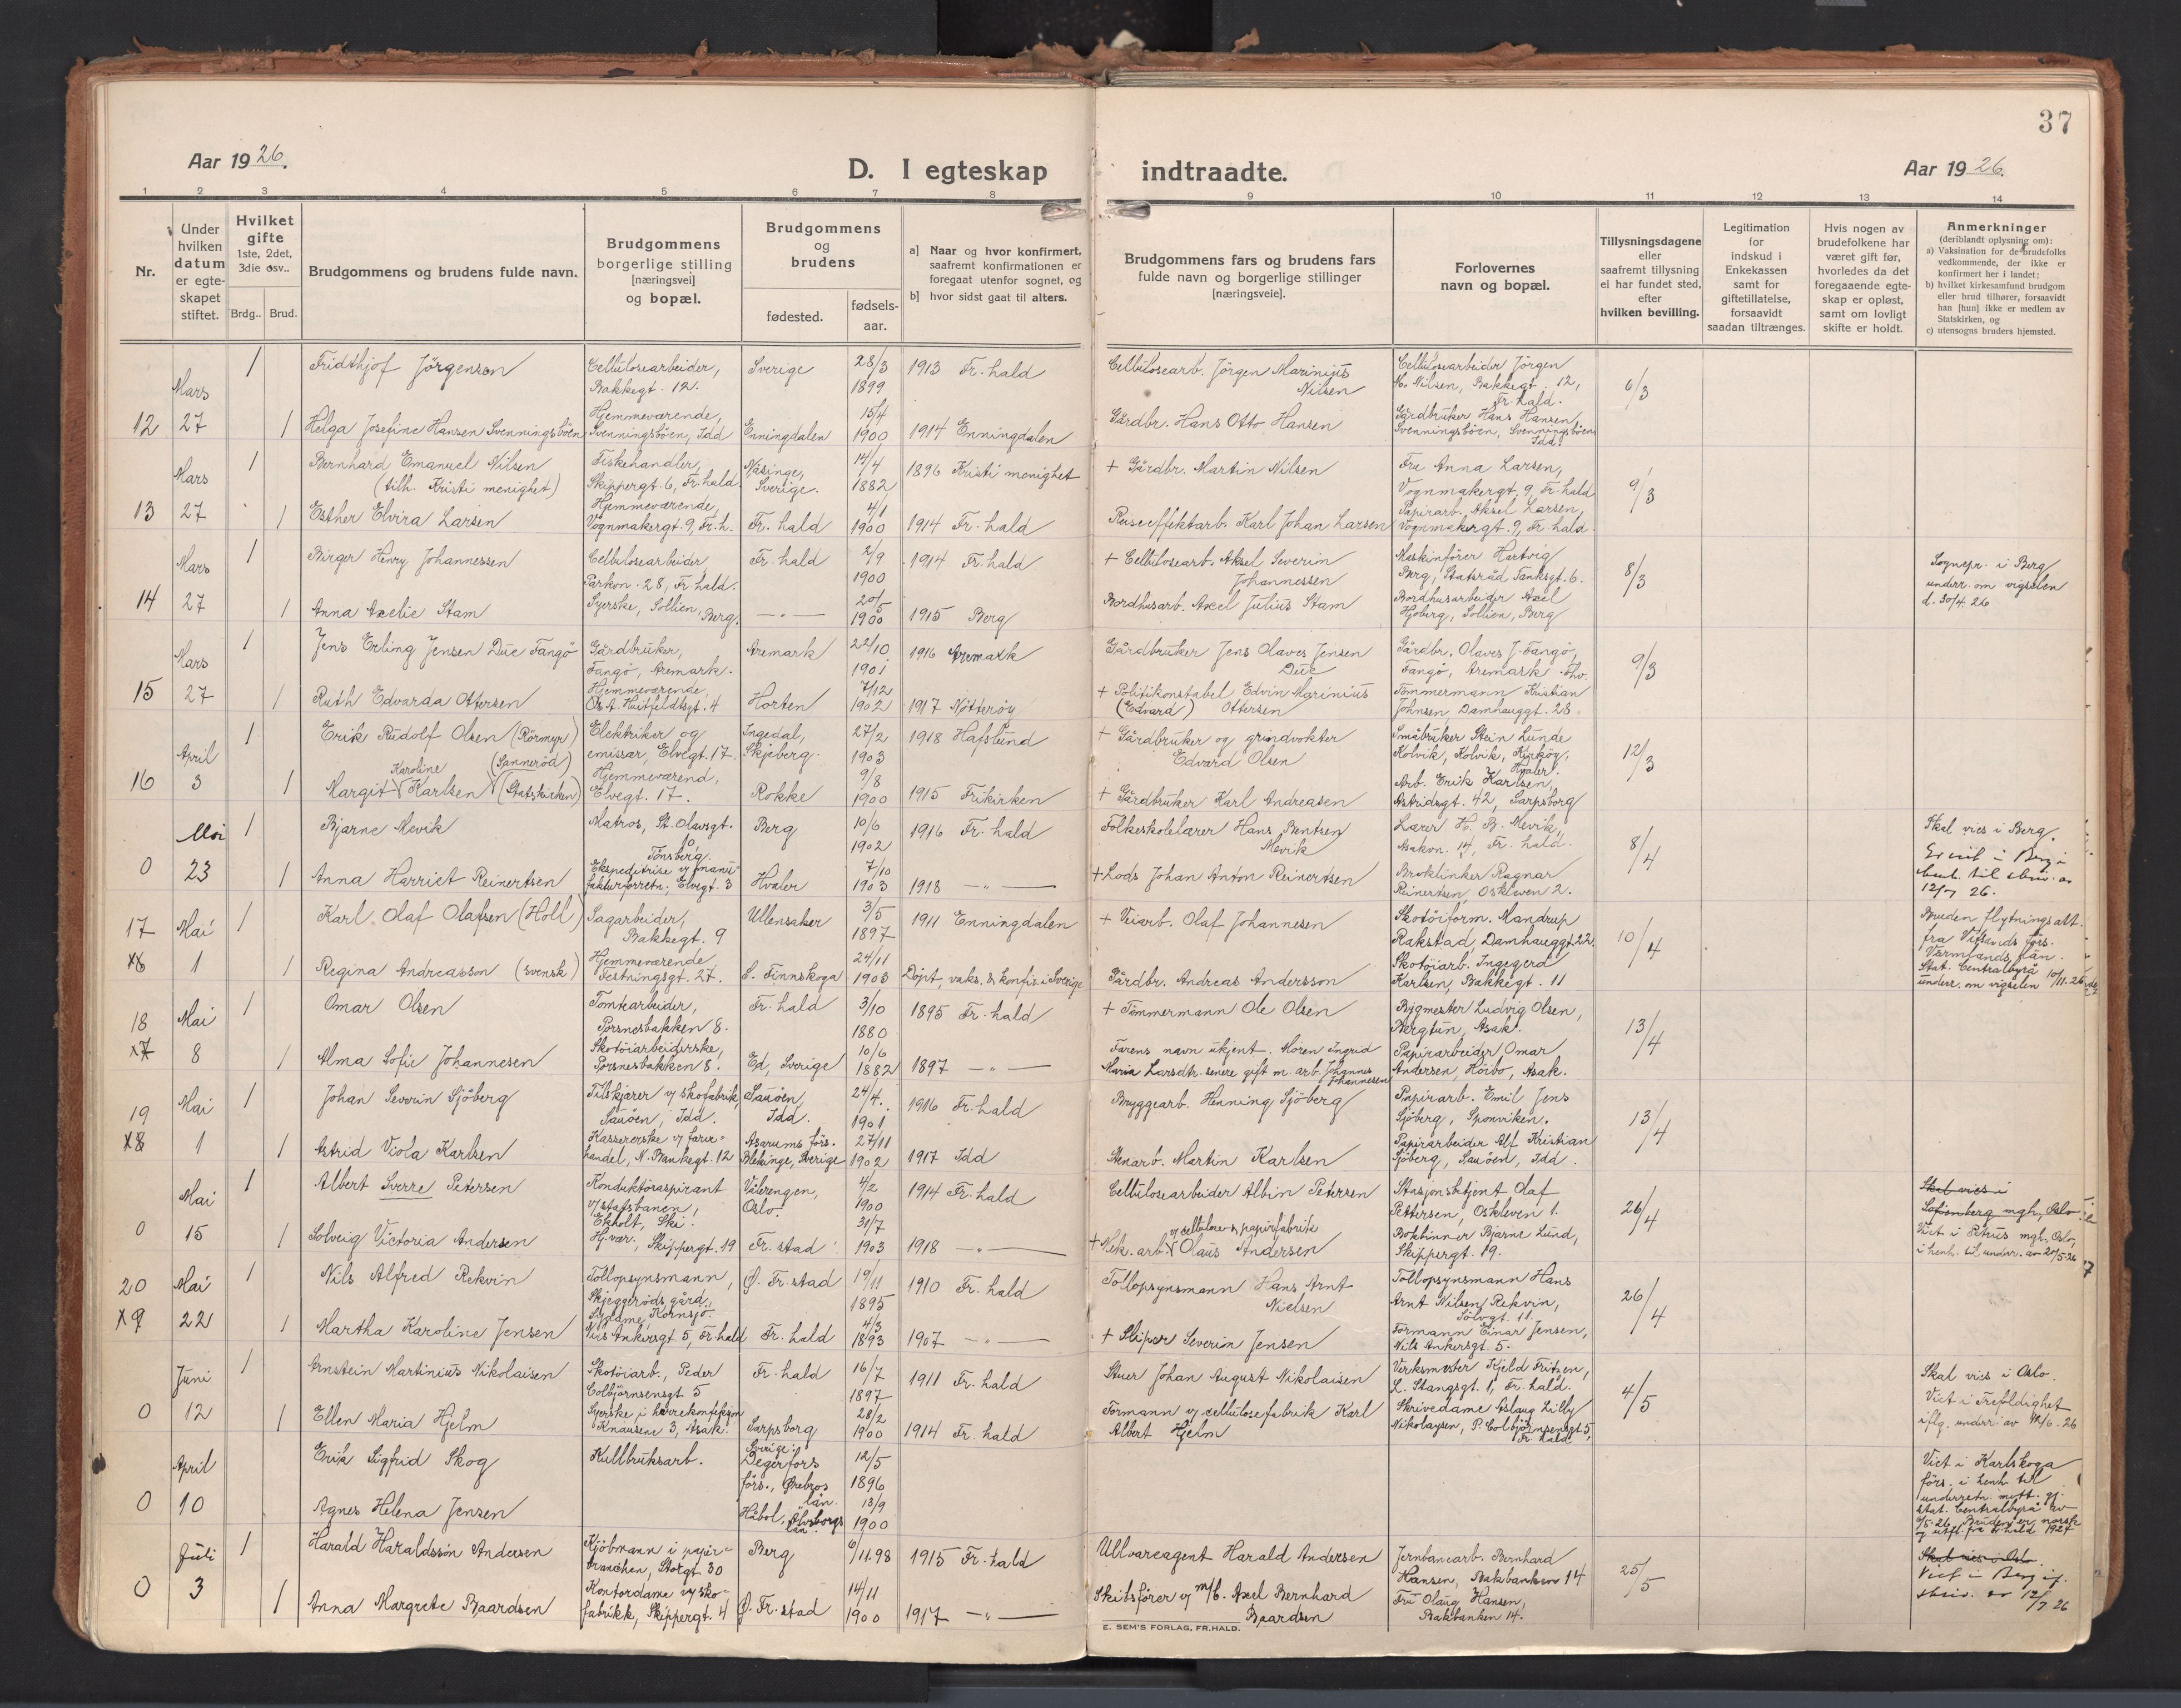 37
Aar 1926.
D. I egteskap indtraadte.
Aar 1926.
1 2 3 4 5 6 7 8 9 10 11 12 13 14
Nr.
Under hvilken datum er egteskapet stiftet.
Hvilket gifte 1ste, 2det, 3die osv..
Brdg.. Brud.
Brudgommens og brudens fulde navn.
Brudgommens borgerlige stilling [næringsvei] og bopæl.
Brudgommens og brudens
fødested.
fødsels-aar.
a] Naar og hvor konfirmert, saafremt konfirmationen er foregaat utenfor sognet, og
b] hvor sidst gaat til alters.
Brudgommens fars og brudens fars fulde navn og borgerlige stillinger [næringsveie].
Forlovernes navn og bopæl.
Tillysningsdagene eller saafremt tillysning ei har fundet sted, efter hvilken bevilling.
Legitimation for indskud i Enkekassen samt for giftetillatelse, forsaavidt saadan tiltrænges.
Hvis nogen av brudefolkene har været gift før, hvorledes da det foregaaende egteskap er opløst, samt om lovligt skifte er holdt.
Anmerkninger (deriblandt oplysning om):
a) Vaksination for de brudefolks vedkommende, der ikke er konfirmert her i landet;
b) hvilket kirkesamfund brudgom eller brud tilhører, forsaavidt han [hun] ikke er medlem av Statskirken, og
c) utensogns bruders hjemsted.
12 Mars 27
1 Fridthjof Jörgensen
Cellulosearbeider, Bakkegt. 12.
Sverige 28/3 1899
1913 Fr.hald
Cellulosearb. Jörgen Marinius Nilsen
Cellulosearbeider Jörgen M. Nilsen, Bakkegt. 12, Fr.hald.
6/3
1 Helga Josefine Hansen Svenningsböen
Hjemmeværende, Svenningsböen, Idd
Enningdalen 15/4 1900
1914 Enningdalen
Gårdbr. Hans Otto Hansen
Gårdbruker Hans Hansen, Svenningsböen, Svenningsböen Idd.
13 Mars 27
1 Bernhard Emanuel Nilsen (tilh. Kristi menighet)
Fiskehandler, Skippergt. 6, Fr.hald.
Näsinge, Sverige. 14/4 1882
1896 Kristi menighet
+ Gårdbr. Martin Nilsen
Fru Anna Larsen, Vognmakergt. 9, Fr.hald
9/3
1 Esther Elvira Larsen
Hjemmeværende, Vognmakergt. 9, Fr.h.
Fr.hald 4/1 1900
1914 Fr.hald
Reiseeffektarb. Karl Johan Larsen
Papirarb. Aksel Larsen, Vognmakergt. 9, Fr.hald.
14 Mars 27
1 Birger Henry Johannessen
Cellulosearbeider, Parkon. 28, Fr.hald.
Fr.hald 2/9 1900
1914 Fr.hald
+ Cellulosearb. Aksel Severin Johannessen
Maskinförer Hartvig Berg, Statsråd Tanksgt. 6.
8/3
Sognepr. i Berg underr. om vigselen d. 30/4. 26
1 Anna Axelie Stam
Syerske, Sollien, Berg.
— " — 20/5 1900
1915 Berg
Bordhusarb. Axel Julius Stam
Bordhusarbeider Axel Hjoberg, Sollien, Berg
15 Mars 27
1 Jens Erling Jensen Due Fangö
Gårdbruker, Fangö, Aremark.
Aremark 22/10 1901
1916 Aremark
Gårdbruker Jens Olaves Jensen Due
Gårdbr. Olaves J. Fangö, Fangö, Aremark.
9/3
1 Ruth Edvarda Ottersen
Hjemmeværende, Chr. A. Huitfeldtsgt. 4
Horten 7/12 1902
1917 Nøtterøy
+ Politikonstabel Edvin Marinius (Edvard) Ottersen
Tømmermann Kristian Johnsen, Damhauggt. 28
16 April 3
1 Erik Rudolf Olsen (Rörmyr) (Sannerød)
Elektriker og emissær, Elvegt. 17
Ingedal, Skjeberg. 27/2 1903
1918 Hafslund
+ Gårdbruker og grindvokter Edvard Olsen
Småbruker Stein Lunde Kolvik, Kolvik, Kirköy, Hvaler.
12/3
1 Margit Karoline Karlsen (Statskirken)
Hjemmeværend, Elvegt. 17.
Rokke 9/8 1900
1915 Frikirken
+ Gårdbruker Karl Andreasen
Arb. Erik Karlsen, Astridsgt. 42, Sarpsborg
0 Mai 23
1 Bjarne Mevik
Matros, St. Olavsgt. 10, Tønsberg.
Berg 10/6 1902
1916 Fr.hald
Folkeskolelærer Hans Bentsen Mevik
Lærer H. B. Mevik, Asakon. 14, Fr.hald.
8/4
Skal vies i Berg.
Er viet i Berg i henh. til skriv. av 12/7 26.
1 Anna Harriet Reinertsen
Ekspeditrise v/ manufakturforretn., Elvegt. 3
Hvaler 7/10 1903
1918 — " —
+ Lods Johan Anton Reinertsen
Broklinker Ragnar Reinertsen, Oskleven 2.
17 x6 Mai 1
1 Karl Olaf Olafsen (Holl)
Sagarbeider, Bakkegt. 9
Ullensaker 3/5 1897
1911 Enningdalen
+ Veiarb. Olaf Johannesen
Skotöiform. Mandrup Rakstad, Damhauggt. 22.
10/4
Bruden flytningsatt. fra Vitsands förs. Värmlands län.
Stat. Centralbyrå 10/11.26 underr. om vigselen
1 Regina Andreasson (svensk)
Hjemmeværende, Festningsgt. 27.
S. Finnskoga 24/11 1903
Döpt, vaks. & konfir. i Sverige
Gårdbr. Andreas Andersson
Skotöiarb. Ingegerd Karlsen, Bakkegt. 11
18 x7 Mai 8
1 Omar Olsen
Tomtearbeider, Porsnesbakken 8.
Fr.hald 3/10 1880
1895 Fr.hald
+ Tømmermann Ole Olsen
Bygmester Ludvig Olsen, Bergtun, Asak.
13/4
1 Alma Sofie Johannesen
Skotöiarbeiderske, Porsnesbakken 8.
Ed, Sverige 10/6 1882
1897 — " —
Farens navn ukjent. Moren Ingrid Maria Larsdtr. senere gift m. arb. Johannes Johannesen
Papirarbeider Omar Andersen, Hörbo, Asak.
19 x8 Mai 1
1 Johan Severin Sjöberg
Tilskjærer v/ skofabrik, Sauöen, Idd.
Sauöen, Idd. 24/4. 1901
1916 Fr.hald
Bryggearb. Henning Sjöberg
Papirarb. Emil Jens Sjöberg, Sponviken.
13/4
1 Astrid Viola Karlsen
Kassererske v/ farvehandel, N. Bankegt. 12
Asarums förs. Blekinge, Sverige 27/11 1902
1917 Idd
Stenarb. Martin Karlsen
Papirarbeider Alf Kristian Sjöberg, Sauöen, Idd.
0 Mai 15
1 Albert Sverre Petersen
Konduktöraspirant v/ statsbanen, Ekholt, Ski.
Vålerengen, Oslo. 4/2 1900
1914 Fr.hald
Cellulosearbeider Albin Petersen
Stasjonsbetjent Olaf Pettersen, Oskleven 1.
26/4
Skal vies i Sofienberg mgh., Oslo
Viet i Petrus mgh., Oslo, i henh. til underr. av 20/5-26
1 Solveig Victoria Andersen
Hj.vær., Skippergt. 19
Fr.stad 31/7 1903
1918 — " —
+ Mek. arb. v/ cellulose & papirfabrik Olaus Andersen
Bokbinner Bjarne Lund, Skippergt. 19.
20 x9 Mai 22
1 Nils Alfred Rekvin
Tollopsynsmann, Skjeggeröds gård, Kornsjö.
Ø. Fr.stad 19/11 1895
1910 Fr.hald
Tollopsynsmann Hans Arnt Nielsen
Tollopsynsmann Hans Arnt Nilsen Rekvin, Sölvgt. 11.
26/4
1 Martha Karoline Jensen
Nils Ankersgt. 5, Fr.hald
Fr.hald 4/3 1893
1907 — " —
+ Skiper Severin Jensen
Formann Einar Jensen, Nils Ankersgt. 5.
0 Juni 12
1 Arnstein Martinius Nikolaisen
Skotöiarb., Peder Colbjörnsensgt. 5
Fr.hald 16/7 1897
1911 Fr.hald
Stuer Johan August Nikolaisen
Verksmester Kjeld Fritzen, L. Stangsgt. 1, Fr.hald.
4/5
Skal vies i Oslo.
Viet i Trefoldighet iflg. underr. av 12/6. 26
1 Ellen Maria Hjelm
Syerske i herrekonfeksjon Knausene 3, Asak.
Sarpsborg 28/2 1900
1914 Fr.hald
Formann v/ cellulosefabrik Karl Albert Hjelm
Skrivedame Aslaug Lilly Nikolaysen, P. Colbjörnsensgt. 5, Fr.hald
0 April 10
Erik Sigfrid Skog
Kullbruksarb.
Sverige: Degerfors förs., Örebros län. 12/5 1896
Agnes Helena Jensen
Håbol, Älvsborgs län. 13/9 1900
Viet i Karlskoga förs. i henh. til underretn. mott. gj. stat. Centralbyrå av 6/5.26. Bruden er norsk og utfl. fra Fr.hald 1927
0 Juli 3
1 Harald Haraldssøn Andersen
Kjöbmann i papirbranchen, Storgt. 30
Berg 6/11.98
1915 Fr.hald
Ullvareagent Harald Andersen
Jernbanearb. Bernhard Hansen, Bakbanken 14
25/5
Skal vies i Oslo.
Viet i Berg if. skriv. av 12/7 26
1 Anna Margrete Baardsen
Kontordame v/ skofabrikk, Skippergt. 4
Ø. Fr.stad 14/11 1900
1917 — " —
Skibsförer v/ m/b. Axel Bernhard Baardsen
Fru Olaug Hansen, Bakbanken 14.
E. SEM'S FORLAG, FR.HALD.